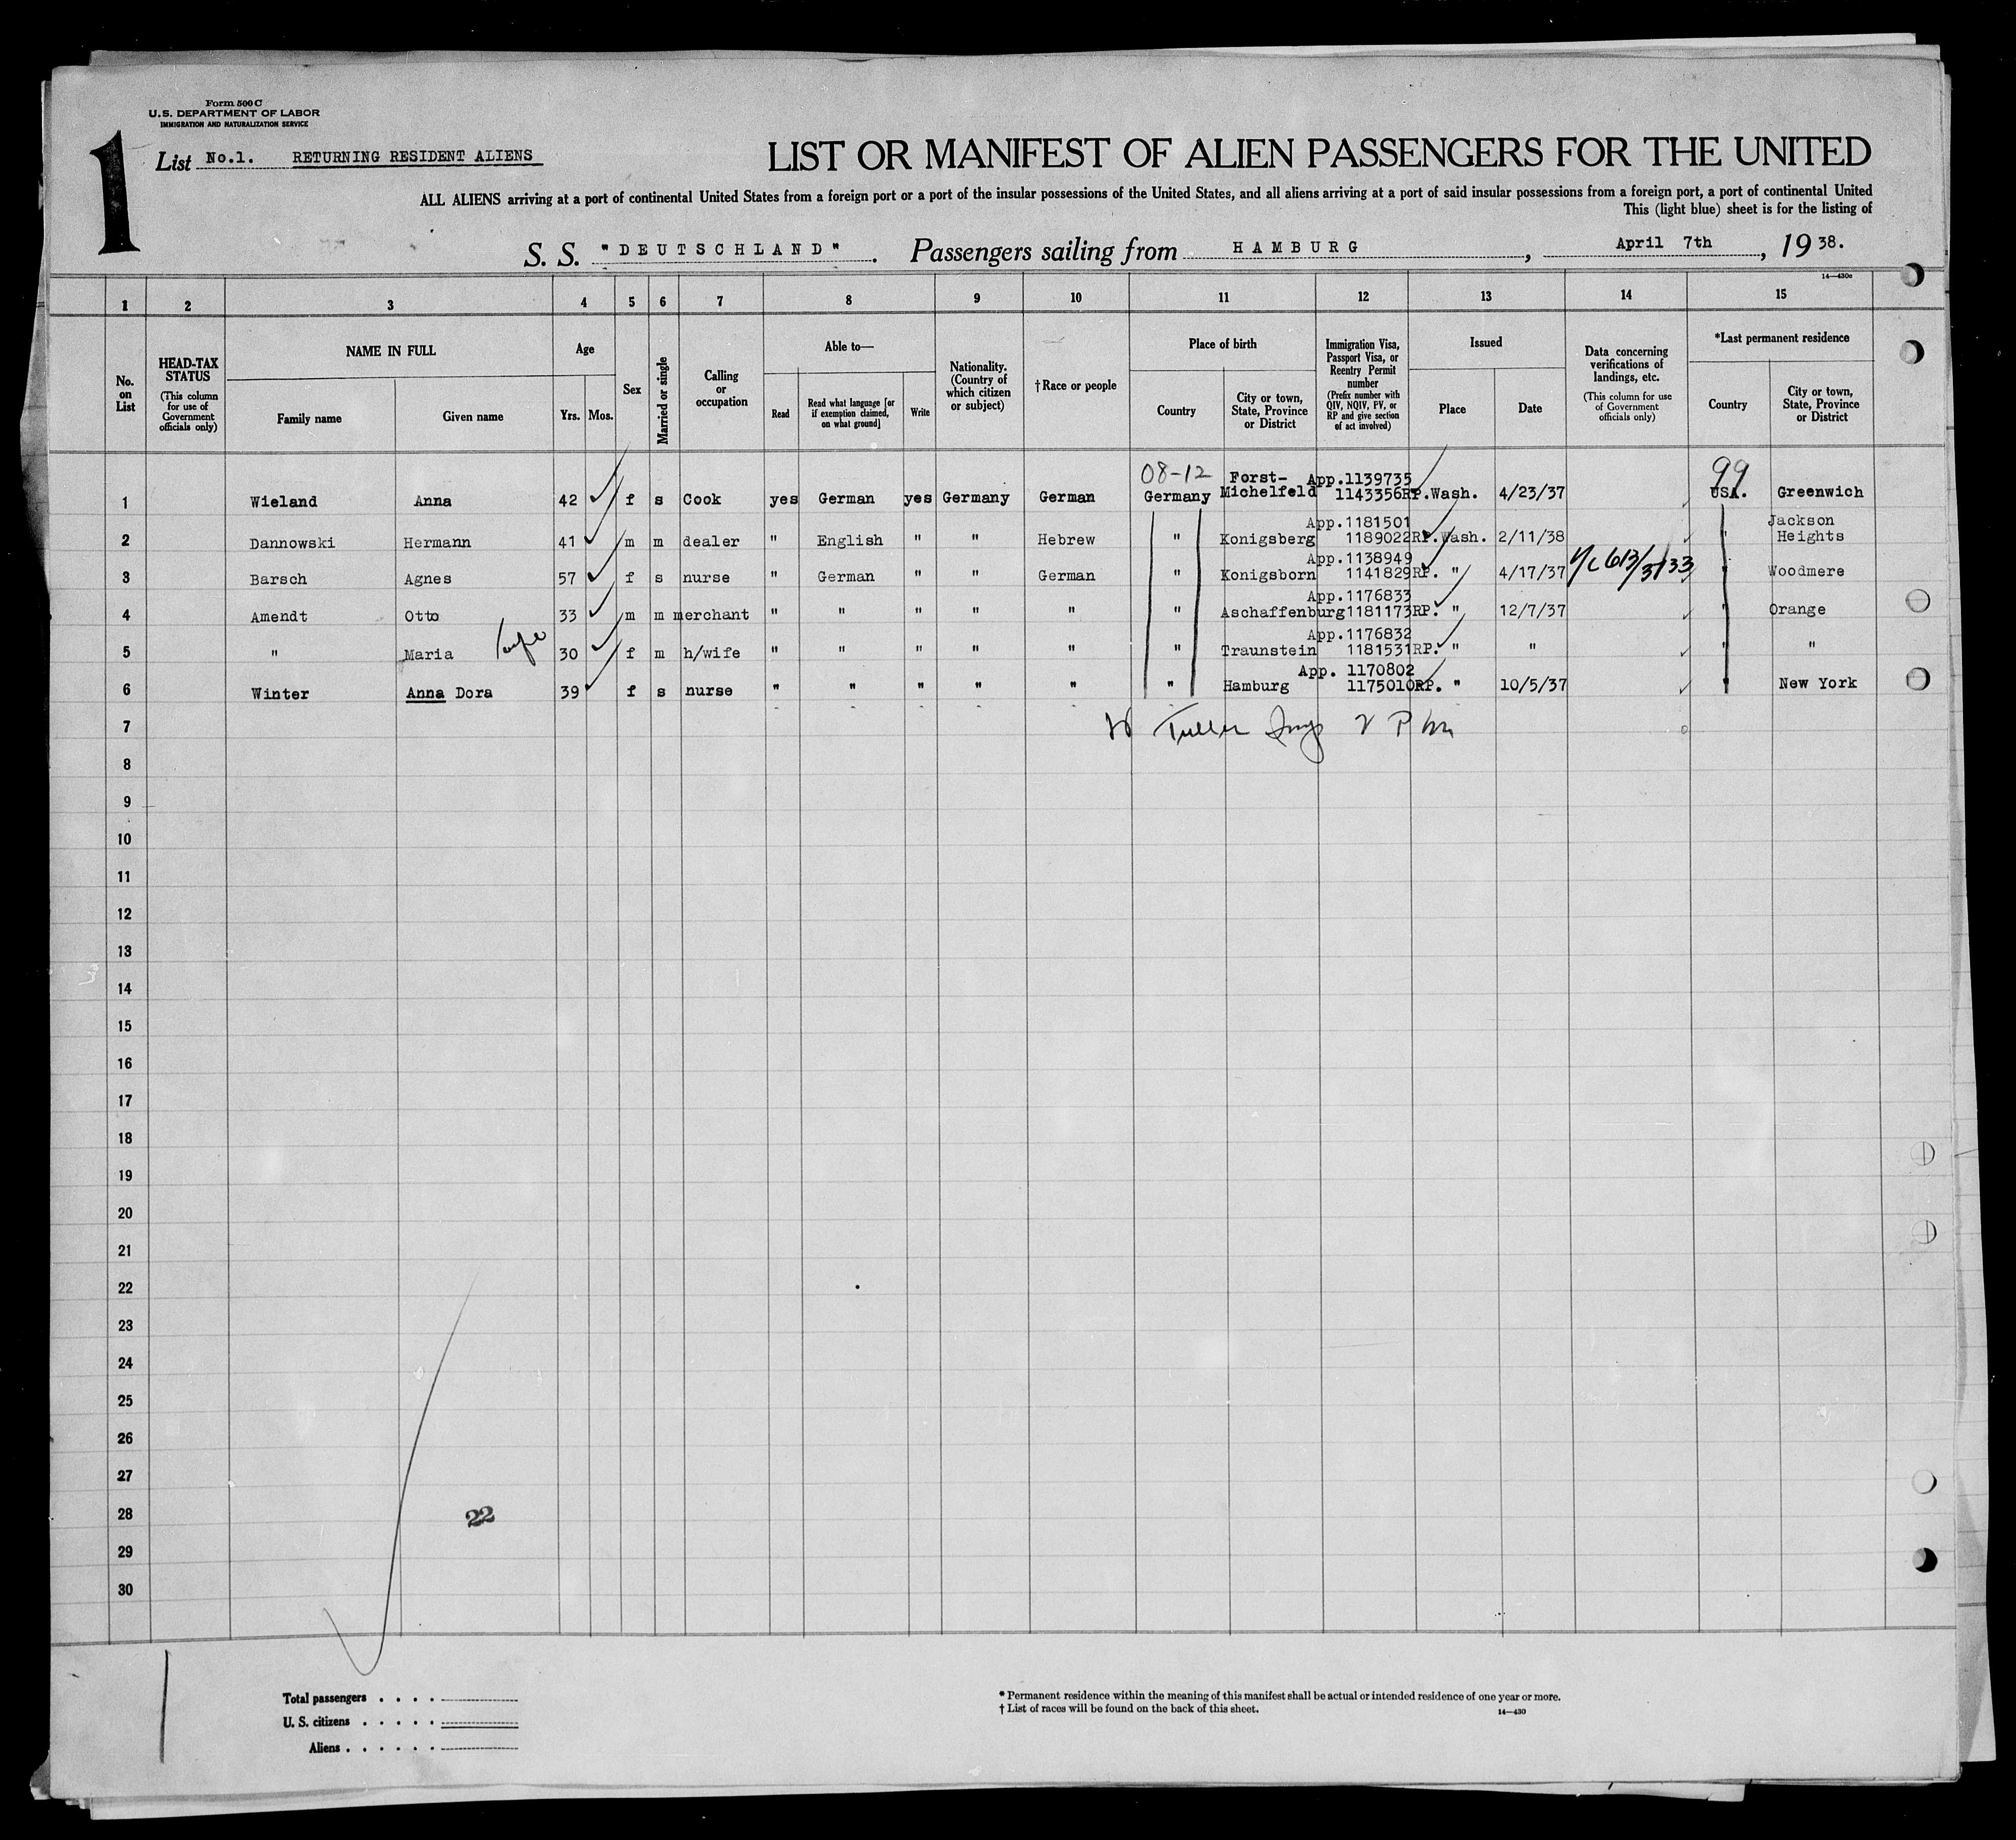 Form 500 C
U.S. DEPARTMENT OF LABOR
IMMIGRATION AND NATURALIZATION SERVICE
1
List No.1. RETURNING RESIDENT ALIENS
LIST OR MANIFEST OF ALIEN PASSENGERS FOR THE UNITED
ALL ALIENS arriving at a port of continental United States from a foreign port or a port of the insular possessions of the United States, and all aliens arriving at a port of said insular possessions from a foreign port, a port of continental United
This (light blue) sheet is for the listing of
S. S. "DEUTSCHLAND". Passengers sailing from HAMBURG, April 7th, 1938.
14—430c
1 2 3 4 5 6 7 8 9 10 11 12 13 14 15
No. on List
HEAD-TAX STATUS (This column for use of Government officials only)
NAME IN FULL
Family name Given name
Age
Yrs. Mos.
Sex
Married or single
Calling or occupation
Able to—
Read
Read what language [or if exemption claimed, on what ground]
Write
Nationality. (Country of which citizen or subject)
†Race or people
Place of birth
Country
City or town, State, Province or District
Immigration Visa, Passport Visa, or Reentry Permit number (Prefix number with QIV, NQIV, PV, or RP and give section of act involved)
Issued
Place Date
Data concerning verifications of landings, etc. (This column for use of Government officials only)
*Last permanent residence
Country
City or town, State, Province or District
08-12 Forst- App.1139735 99
1 Wieland Anna 42 f s Cook yes German yes Germany German Germany Michelfeld 1143356RP. Wash. 4/23/37 USA. Greenwich
App.1181501 Jackson
2 Dannowski Hermann 41 m m dealer " English " " Hebrew " Konigsberg 1189022RP. Wash. 2/11/38 " Heights
App.1138949
3 Barsch Agnes 57 f s nurse " German " " German " Konigsborn 1141829RP. " 4/17/37 " Woodmere
App.1176833
4 Amendt Otto 33 m m merchant " " " " " " Aschaffenburg 1181173RP. " 12/7/37 " Orange
App.1176832
5 " Maria 30 f m h/wife " " " " " " Traunstein 1181531RP. " " "
App. 1170802
6 Winter Anna Dora 39 f s nurse " " " " " " Hamburg 1175010RP. " 10/5/37 New York
7
8
9
10
11
12
13
14
15
16
17
18
19
20
21
22
23
24
25
26
27
28
22
29
30
Total passengers . . . .
U. S. citizens . . . . .
Aliens . . . . . .
* Permanent residence within the meaning of this manifest shall be actual or intended residence of one year or more.
† List of races will be found on the back of this sheet.
14—430